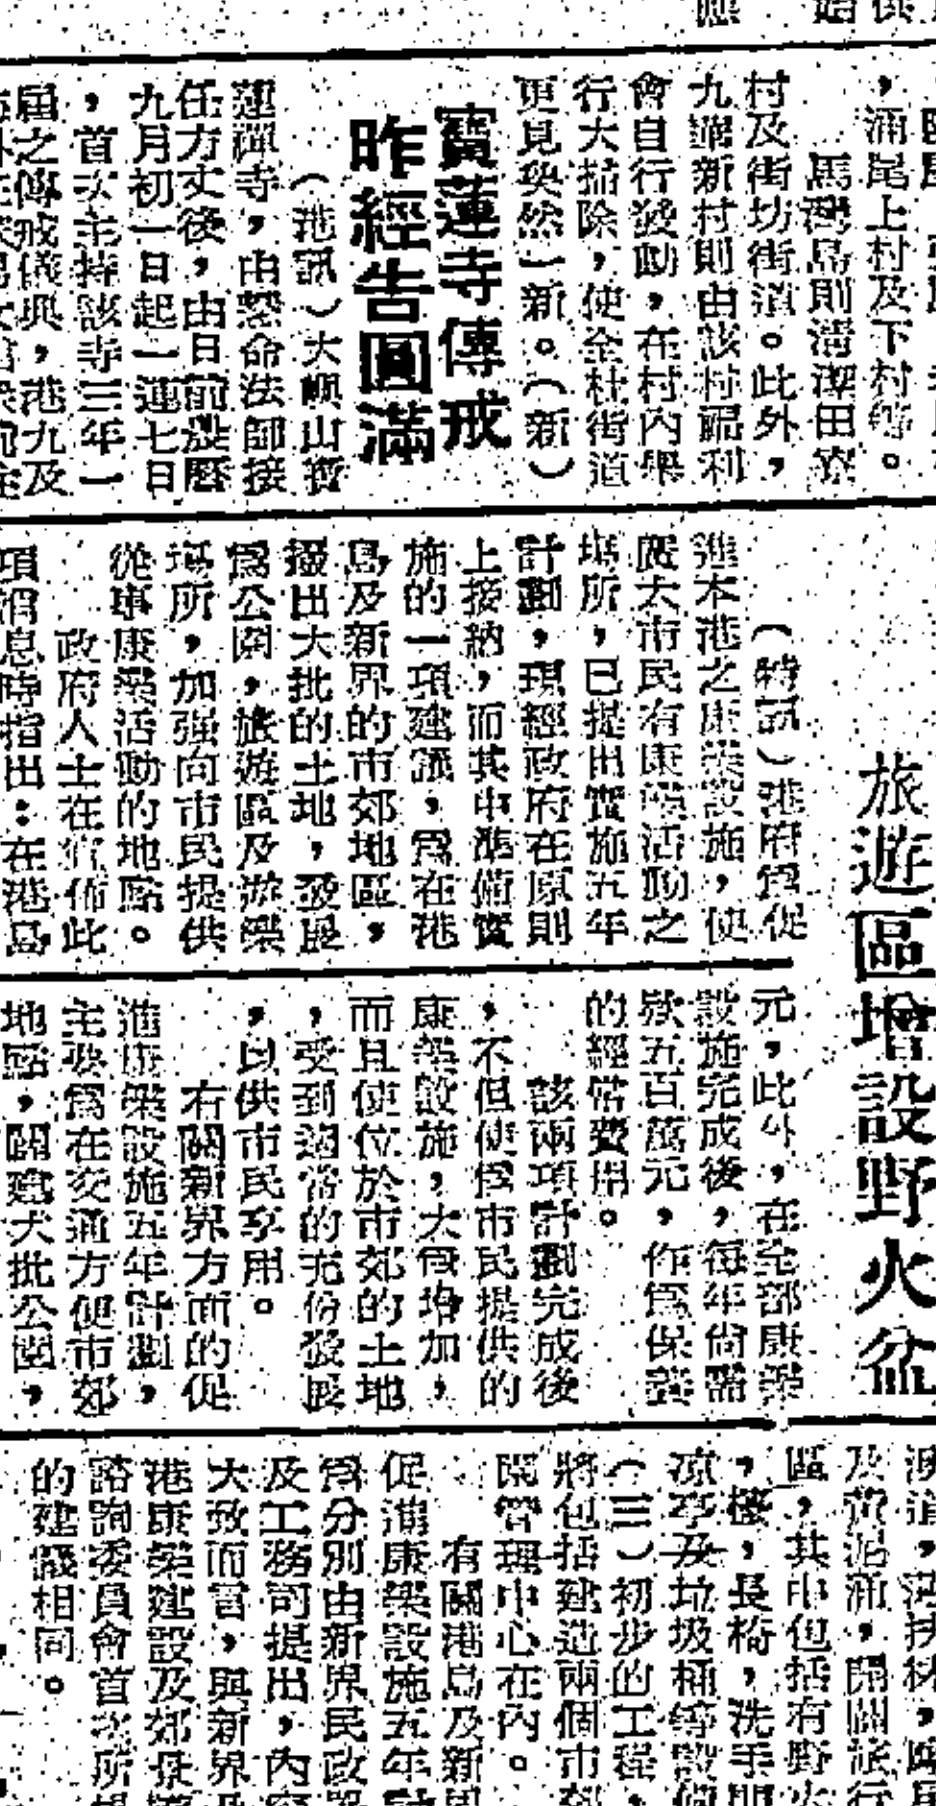 ，涌尾上村及下村等。
馬灣島則清潔田寮
村及街坊街道。此外，
九澗新村則由該村福利
會自行發動，在村內舉
行大掃除，使全村街道
更見煥然一新。（新）
寶蓮寺傳戒
昨經告圓滿
（港訊）大嶼山寶
蓮禪寺，由慧命法師接
任方丈後，由日前農曆
九月初一日起一連七日
，首次主持該寺三年一
屆之傳戒儀典，港九及
旅遊區增設野火盆
（特訊）港府為促
進本港之康樂設施，使
廣大市民有康樂活動之
場所，已提出實施五年
計劃，現經政府在原則
上接納，而其中準備實
施的一項建議，為在港
島及新界的市郊地區，
撥出大批的土地，發展
為公園，旅遊區及遊樂
場所，加强向市民提供
從事康樂活動的地點。
政府人士在宣佈此
項消息時指出：在港島
元，此外，在全部康樂
設施完成後，每年尚需
欵五百萬元，作為保養
的經常費用。
該兩項計劃完成後
，不但使為市民提供的
康樂設施，大為增加，
而且使位於市郊的土地
，受到適當的充份發展
，以供市民享用。
有關新界方面的促
進康樂設施五年計劃，
主要為在交通方便市郊
地點，闢建大批公園，
及黃泥涌，開闢旅行
區，其中包括有野火
，檯，長椅，洗手間
凉亭及垃圾桶等設備
（三）初步的工程，
將包括建造兩個市郊
閒管理中心在內。
有關港島及新界
促進康樂設施五年計
為分別由新界民政署
及工務司提出，內容
大致而言，與新界及
港康樂建設及郊景護
諮詢委員會首次所提
的建議相同。